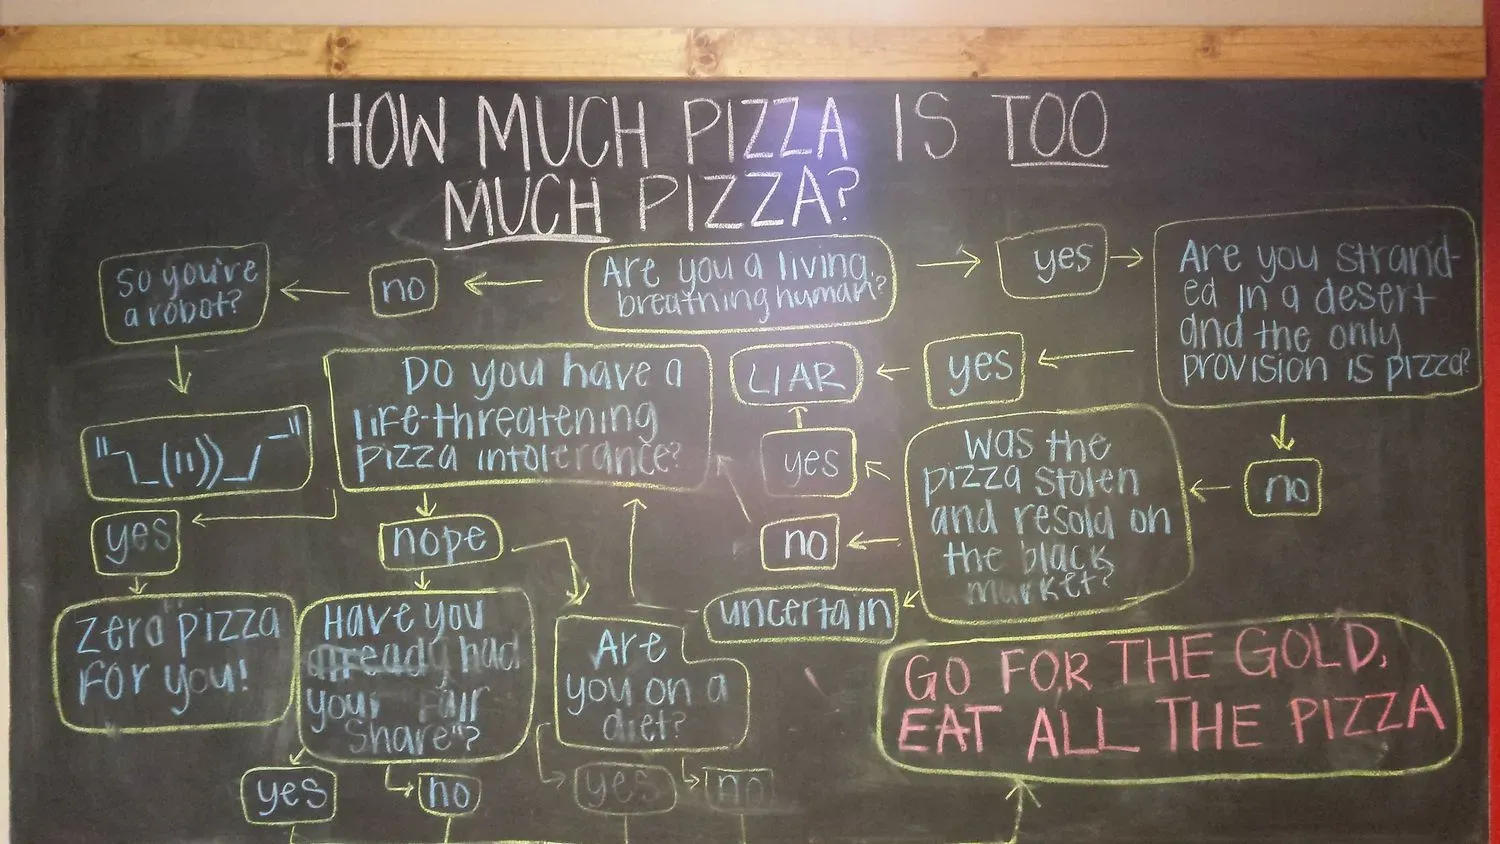 HOW MUCH PIZZA IS TOO
MUCH PIZZA?
So you're
a robot?
no
Are you a living,
breathing human?
yes
Are you strand-
ed in a desert
and the only
provision is pizza?
Do you have a
life-threatening
pizza intolerance?
LIAR
yes
"¯\_(ıı))_/¯"
yes
Was the
pizza stolen
and resold on
the black
market?
no
yes
nope
no
zero pizza
for you!
Have you
already had
your "fair
share"?
Are
you on a
diet?
uncertain
GO FOR THE GOLD,
EAT ALL THE PIZZA
yes
no
yes
no